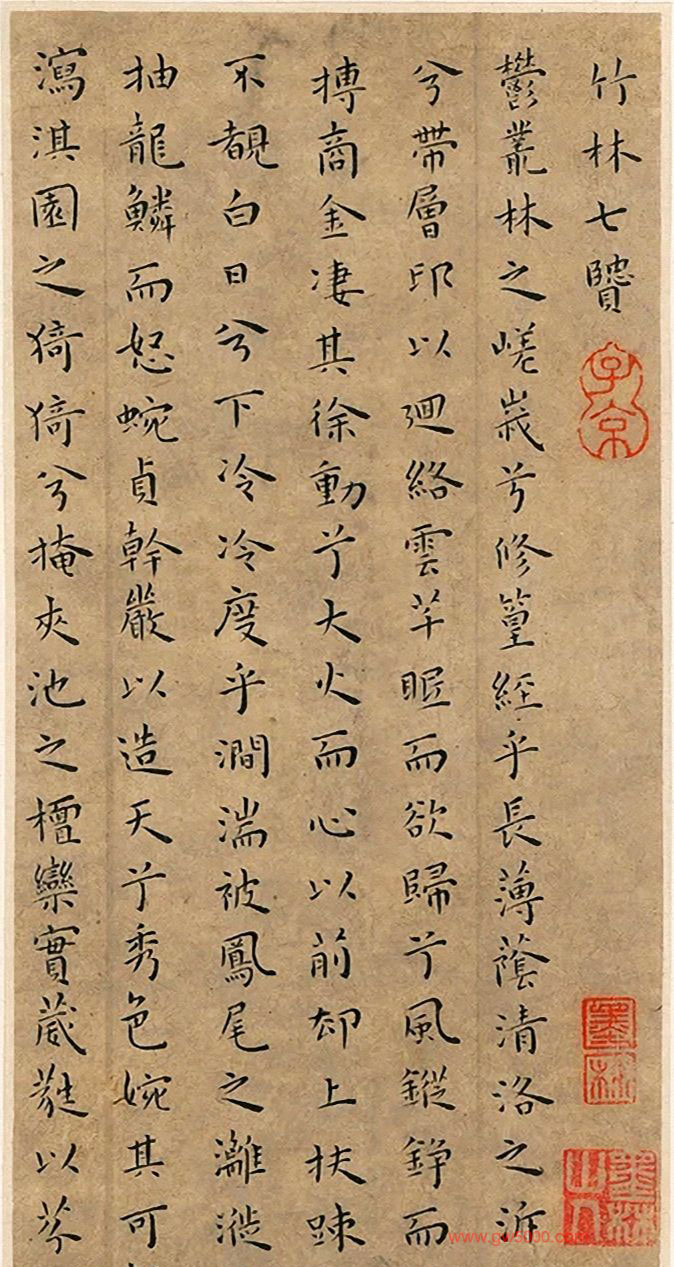 竹林七贒
鬱叢林之嵯峩兮修篁經乎長薄蔭清洛之泝
兮帶層邙以廻絡雲芊眠而欲歸兮風鏦錚而
摶商金凄其徐動兮大火而心以前却上扶踈
不覩白日兮下冷冷度乎澗湍被鳳尾之灕漇
抽龍鱗而怒蜿貞幹嚴以造天兮秀色婉其可
瀉淇園之猗猗兮掩夾池之檀欒實葳蕤以芩
子京
墨林
墨林山人